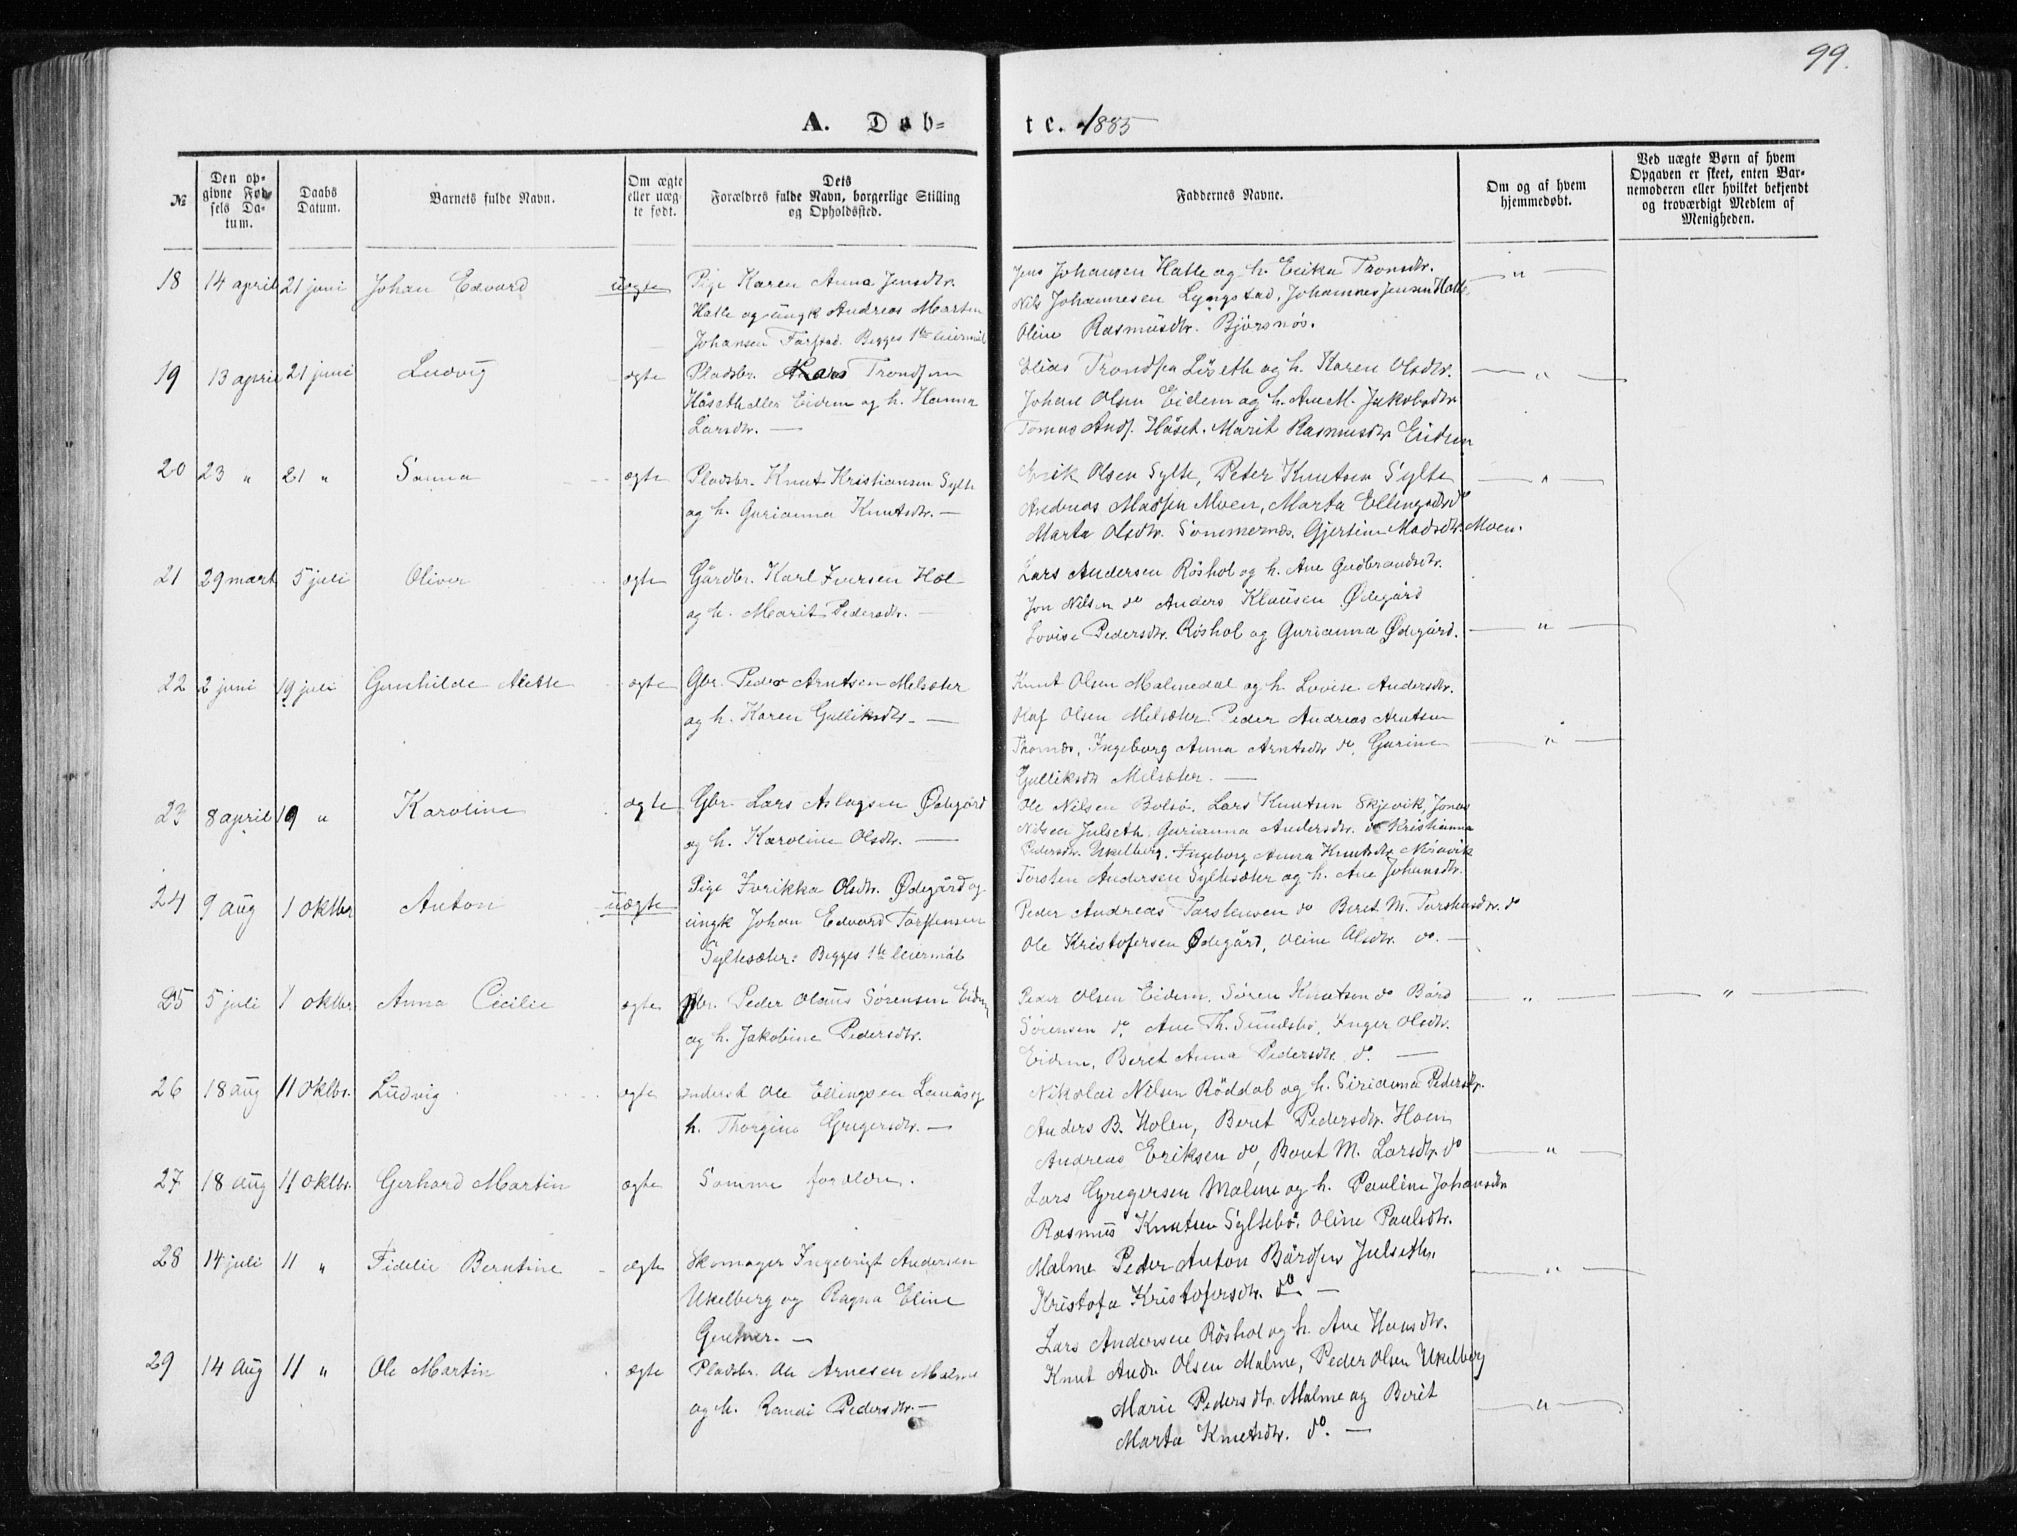 99.
A. Døb-
te. 1885
№
Den op-
givne Fød-
sels Da-
tum.
Daabs
Datum.
Barnets fulde Navn.
Om ægte
eller uæg-
te født.
Dets
Forældres fulde Navn, borgerlige Stilling
og Opholdssted.
Faddernes Navne.
Om og af hvem
hjemmedøbt.
Ved uægte Børn af hvem
Opgaven er skeet, enten Bar-
nemoderen eller hvilket bekjendt
og troværdigt Medlem af
Menigheden.
18 14 april 21 juni Johan Edvard uægte Pige Karen Anna Jensdtr.
Halle og ungk Andreas Martin
Johansen Farstad. Begges 1ste leiermål
Jens Johansen Halle og h. Erika Tronsdtr. — " —
Nils Johannesen Lyngstad. Johannes Jensen Halle,
Oline Rasmusdtr. Bjørsnøs.
19 13 april 21 juni Ludvig ægte Pladsbr. Lars Trondsen
Håseth eller Eidem og h. Hanna
Larsdtr. —
Elias Trondsen Liseth og h. Karen Olsdtr. — " —
Johan Olsen Eidem og h. Ane M. Jakobsdtr.
Tomas Ands. Håset. Marit Rasmusdtr. Eidem
20 23 " 21 " Sanna ægte Pladsbr. Knut Kristiansen Sylte
og h. Gurianna Knutsdtr. —
Erik Olsen Sylte, Peter Knutsen Sylte — " —
Andreas Madsen Moen, Marta Ellingsdtr do
Marta Olsdtr. Sommernes. Gjertine Madsdtr. Moen.
21 29 mart 5 juli Oliver ægte Gårdbr. Karl Iversen Hol
og h. Marit Pedersdtr. —
Lars Andersen Røshol og h. Ane Gudbrandsdtr.
Jon Nilsen do Anders Klausen Ødegård
Lovise Pedersdtr. Røshol og Gurianna Ødegård. — " —
22 2 juni 19 juli Gunhilde Mette ægte Gbr. Peder Arntsen Melsæter
og h. Karen Gulliksdtr. —
Knut Olsen Malmedal og h. Lovise Andersdtr.
Olaf Olsen Melsæter. Peder Andreas Arntsen
Thomæs, Ingeborg Anna Arntsdtr do, Gurine — " —
Gulliksdtr Melsæter. —
23 8 april 19 " Karoline ægte Gbr. Lars Aslagsen Ødegård
og h. Karoline Olsdtr. —
Ole Nilsen Bolsø. Lars Knutsen Skjevik, Jonas
Nilsen Julseth. Gurianna Andersdtr. do Kristianna
Pedersdtr. Ukelberg. Ingeborg Anna Knutsdtr
24 9 aug 1 oktbr Anton uægte Pige Ivrikka Olsdtr. Ødegård og
ungk Johan Edvard Torstensen
Syltesæter: Begges 1ste leiermål
Torsten Andersen Syltesæter og h. Ane Johansdtr.
Peder Andreas Torstensen do Beret M. Torstensdtr. do
Ole Kristofersen Ødegård, Oline Olsdtr. do. —
25 5 juli 1 oktbr. Anna Cecilie ægte Gbr. Peder Olaus Sørensen Eidem
og h. Jakobine Pedersdtr.
Peder Olsen Eidem. Søren Knutsen do Bård — " — — " —
Sørensen do. Ane Th. Sundsbø, Inger Olsdtr.
Eidem, Beret Anna Pedersdtr do. —
26 18 aug 11 oktbr. Ludvig ægte Inderst Ole Ellingsen Lanäs og
h. Thorgine Gregersdtr. —
Nikolai Nilsen Røddal og h. Sirianna Pedersdtr.
Anders B. Holen, Beret Pedersdtr. Hoem
Andreas Eriksen do, Beret M. Larsdtr. do — " —
27 18 aug 11 oktbr. Gerhard Martin ægte Samme foreldre.
Lars Gregersen Malme og h. Pauline Johansdtr
Rasmus Knutsen Syltebø. Oline Paulsdtr.
28 14 juli 11 " Fidelie Berntine ægte Skomager Ingebrigt Andersen
Ukelberg og Ragna Eline
—
Malme Peder Anton Bårdsen Julseth. — " —
Kristofa Kristofersdtr. do —
Lars Andersen Røshol og h. Ane Hansdtr.
29 14 aug 11 " Ole Martin ægte Pladsbr. Ole Arnesen Malme
og h. Randi Pedersdtr. —
Knut Andr. Olsen Malme, Peder Olsen Ukelberg
Marie Pedersdtr. Malme og Berit — " —
Marta Knutsdtr. do. —